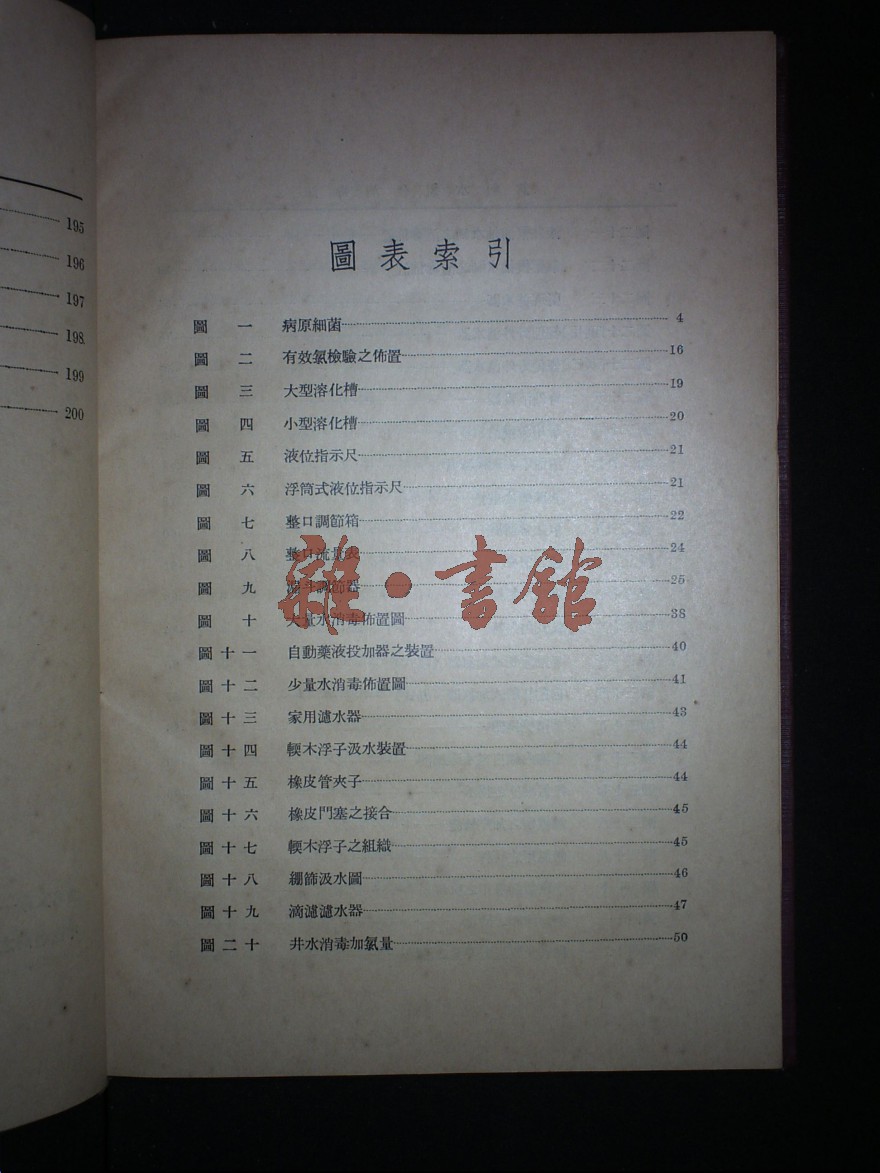 195
196
197
198
199
200
圖表索引
圖一 病原細菌 4
圖二 有效氯檢驗之佈置 16
圖三 大型溶化槽 19
圖四 小型溶化槽 20
圖五 液位指示尺 21
圖六 浮筒式液位指示尺 21
圖七 整口調節箱 22
圖八 整口流量表 24
圖九 調節器 25
圖十 大量水消毒佈置圖 38
圖十一 自動藥液投加器之裝置 40
圖十二 少量水消毒佈置圖 41
圖十三 家用濾水器 43
圖十四 輭木浮子汲水裝置 44
圖十五 橡皮管夾子 44
圖十六 橡皮門塞之接合 45
圖十七 輭木浮子之組織 45
圖十八 綳篩汲水圖 46
圖十九 滴濾濾水器 47
圖二十 井水消毒加氯量 50
雜·書館